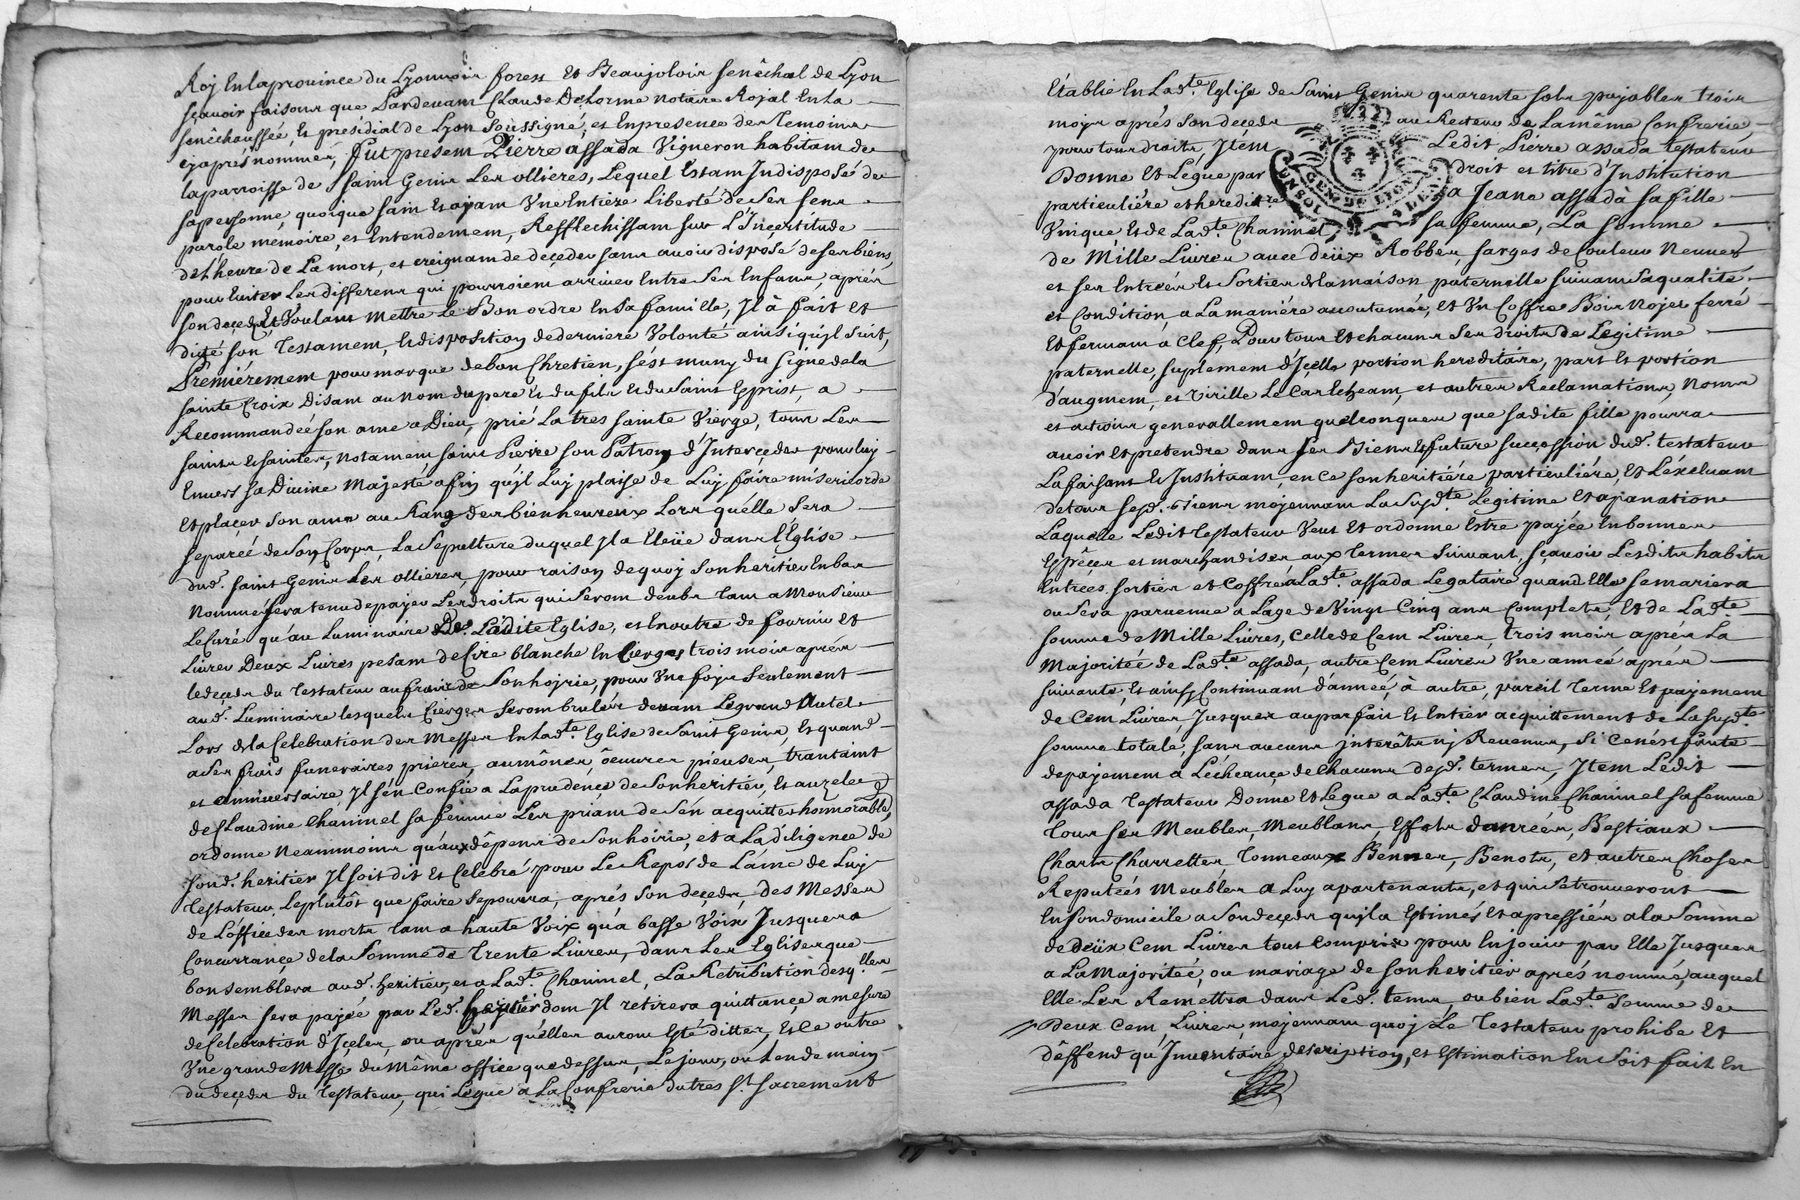 Roy en la province du Lyonnois forest et Beaujolois senêchal de Lyon
sçavoir faisons que Pardevant Claude Delorme notaire Royal en la
senêchaussée et presidial de Lyon soussigné, et en presence des Temoins
cyaprés nommés, fut present Pierre assada Vigneron habitant de
la parroisse de saint Genis Les ollieres, Lequel Estant Indisposé de
sa personne, quoique sain et ayant Une Entiere Liberté de ses sens
parole memoire, et Entendement, Refflechissant sur L'Incertitude
de L'heure de La mort, et creignant de deçeder sans avoir disposé de ses biens,
pour Eviter Les differens qui pourroient arriver Entre ses Enfans, aprés
son deçeds, Et Voulant mettre Le Bon ordre En sa famille, Il à fait et
dicté son Testament, et disposition de derniere Volonté ainsi qu'yl suit,
Premiérement pour marque de bon Chretien, s'ést muny du signe de la
sainte Croix Disant au nom du pere et du fils et du Saint Esprist, a
Recommandée son ame a Dieu, prié La tres sainte Vierge, tous Les
saints et saintes, notament saint Pierre son Patron d'Interceder pour luy
Envers sa Divine Majesté afin qu'yl Luy plaise de Luy faire misericorde
et plaçer son ame au Rang des bienheureux Lors qu'élle sera
separée de son Corps, La Sepulture duquel yl a Eleüe dans l'Eglise
dud. saint Genis Les ollieres, pour raison de quoy son heritier En bas
nommé sera tenu de payer Les droits qui seront deubs tant a Monsieur
Le Curé qu'au Luminaire De Ladite Eglise, et En outre de fournir et
Livrer Deux Livres pesant de Cire blanche En Cierges trois mois aprés
le deçeds du Testateur aux frais de son hoyrie, pour Une foys seulement
aud. Luminaire lesquels Cierges seront bruler devant Le grand Autel
Lors de la Celebration des Messes En Lad.te Eglise de Saint Genis, Et quand
a ses frais funeraires, prieres, aumônes, oeuvres pieuses, trantaint
et anniversaire, Il s'én Confie a La prudençe de son heritier, Et au zele
de Claudine Chaninel sa femme Les priant de s'én acquitter honnorable,
ordonne neanmoins qu'aux dêpens de son hoirie, et a La diligence de
son d. heritier Il soit dit et Celébré pour Le Repos de L'âme de Luy
Testateur, Le plutôt que faire se pourra, aprés son deçeds, des Messes
de L'office des morts tant a haute Voix qu'a basse Voix, Jusques a
Concurrançe de la somme de Trente Livres, dans Les Eglises que
bon semblera aud. heritier, et a Lad.te Chaninel, La Retribution desq.lles
Messes sera payée par Led. heritier dont Il retirera quittançe a mesure
de Celebration d'Içelles, ou aprés qu'élles auront Eté dittes, Et Ce outre
Une grande Messe du même office que dessus, Le jour, ou Lendemain
du deçeds du Testateur, qui Légue à La Confrerie du tres St. sacrement
Etablie En Lad.te Eglise de Saint Genis quarente sols payables trois
moys aprés son deçeds au Recteur de La même Confrerie,
pour tous droits, Item Ledit Pierre assada testateur
Donne Et Légue par droit et titre d'Institution
particuliére et hereditre a Jeane assadà sa fille
Unique et de Lad.te Chaninel sa femme, La somme
UN SOL 4 DEN.
GEN. DE LYON
de Mille Livres avec deüx Robbes, sarges de Couleur Neuves
et ses Entrées et Sorties de la maison paternelle suivant sa qualité
et Condition, a La maniére accoutumée, et Un Coffre Bois Noyer ferré
Et fermant a Clef, Pour tous Et chacuns ses droits de Legitime
paternelle, suplement d'Içelle, portion hereditaire, part et portion
d'augment, et Virille Le Cas Echeant, et autres Réclamations, Noms
et actions generallement quelconques que sadite fille pourra
avoir Et pretendre dans ses Biens Et future succession dud. testateur
La faisant Et Instituant, en Ce son heritiére particuliére, Et L'éxcluant
de tous sesd. Biens moyennant La susd.te Legitime et apanation
Laquelle Ledit Testateur Veut Et ordonne Estre payée En bonnes
Espêçes et marchandises aux termes suivant, sçavoir Les dits habits
Entrées, sorties et Coffre a Lad.te assada Legataire quand Elle se mariera
ou sera parvenue a L'age de Vingt Cinq ans Complets, Et de Lad.te
somme de Mille Livres, Celle de Cent Livres trois mois aprés La
Majoritée de Lad.te assada, autre Cent Livres Une année aprés
suivante, Et ainsy Continuant d'année à autre, pareil terme Et payement
de Cent Livres Jusques au parfait Et Entier acquittement de La susd.te
somme totale, sans aucuns interêts ny Revenus, si Ce n'ést faute
de payement a L'écheançe de Chacuns desd. termes, Item Ledit
assada Testateur Donne Et Legue a Lad.te Claudine Chaninel sa femme
tous ses Meubles, Meublans, Effets, danrées, Bestiaux
Chars Charrettes, Tonneaux, Bennes, Benots, et autres Choses
Reputées Meubles a Luy apartenants, et qui se trouveront
En son domicile a son deçeds qu'yl a Estimés Et apressiés a la Somme
de deüx Cent Livres tout Compris pour En jouir par Elle Jusques
a La Majoritée, ou mariage de son heritier aprés nommé, auquel
Elle Les Remettra dans Led. tems, ou bien Lad.te Somme de
Deux Cent Livres, moyennant quoy Le Testateur prohibe Et
dêffend qu'Inventaire description, et Estimation En soit fait En